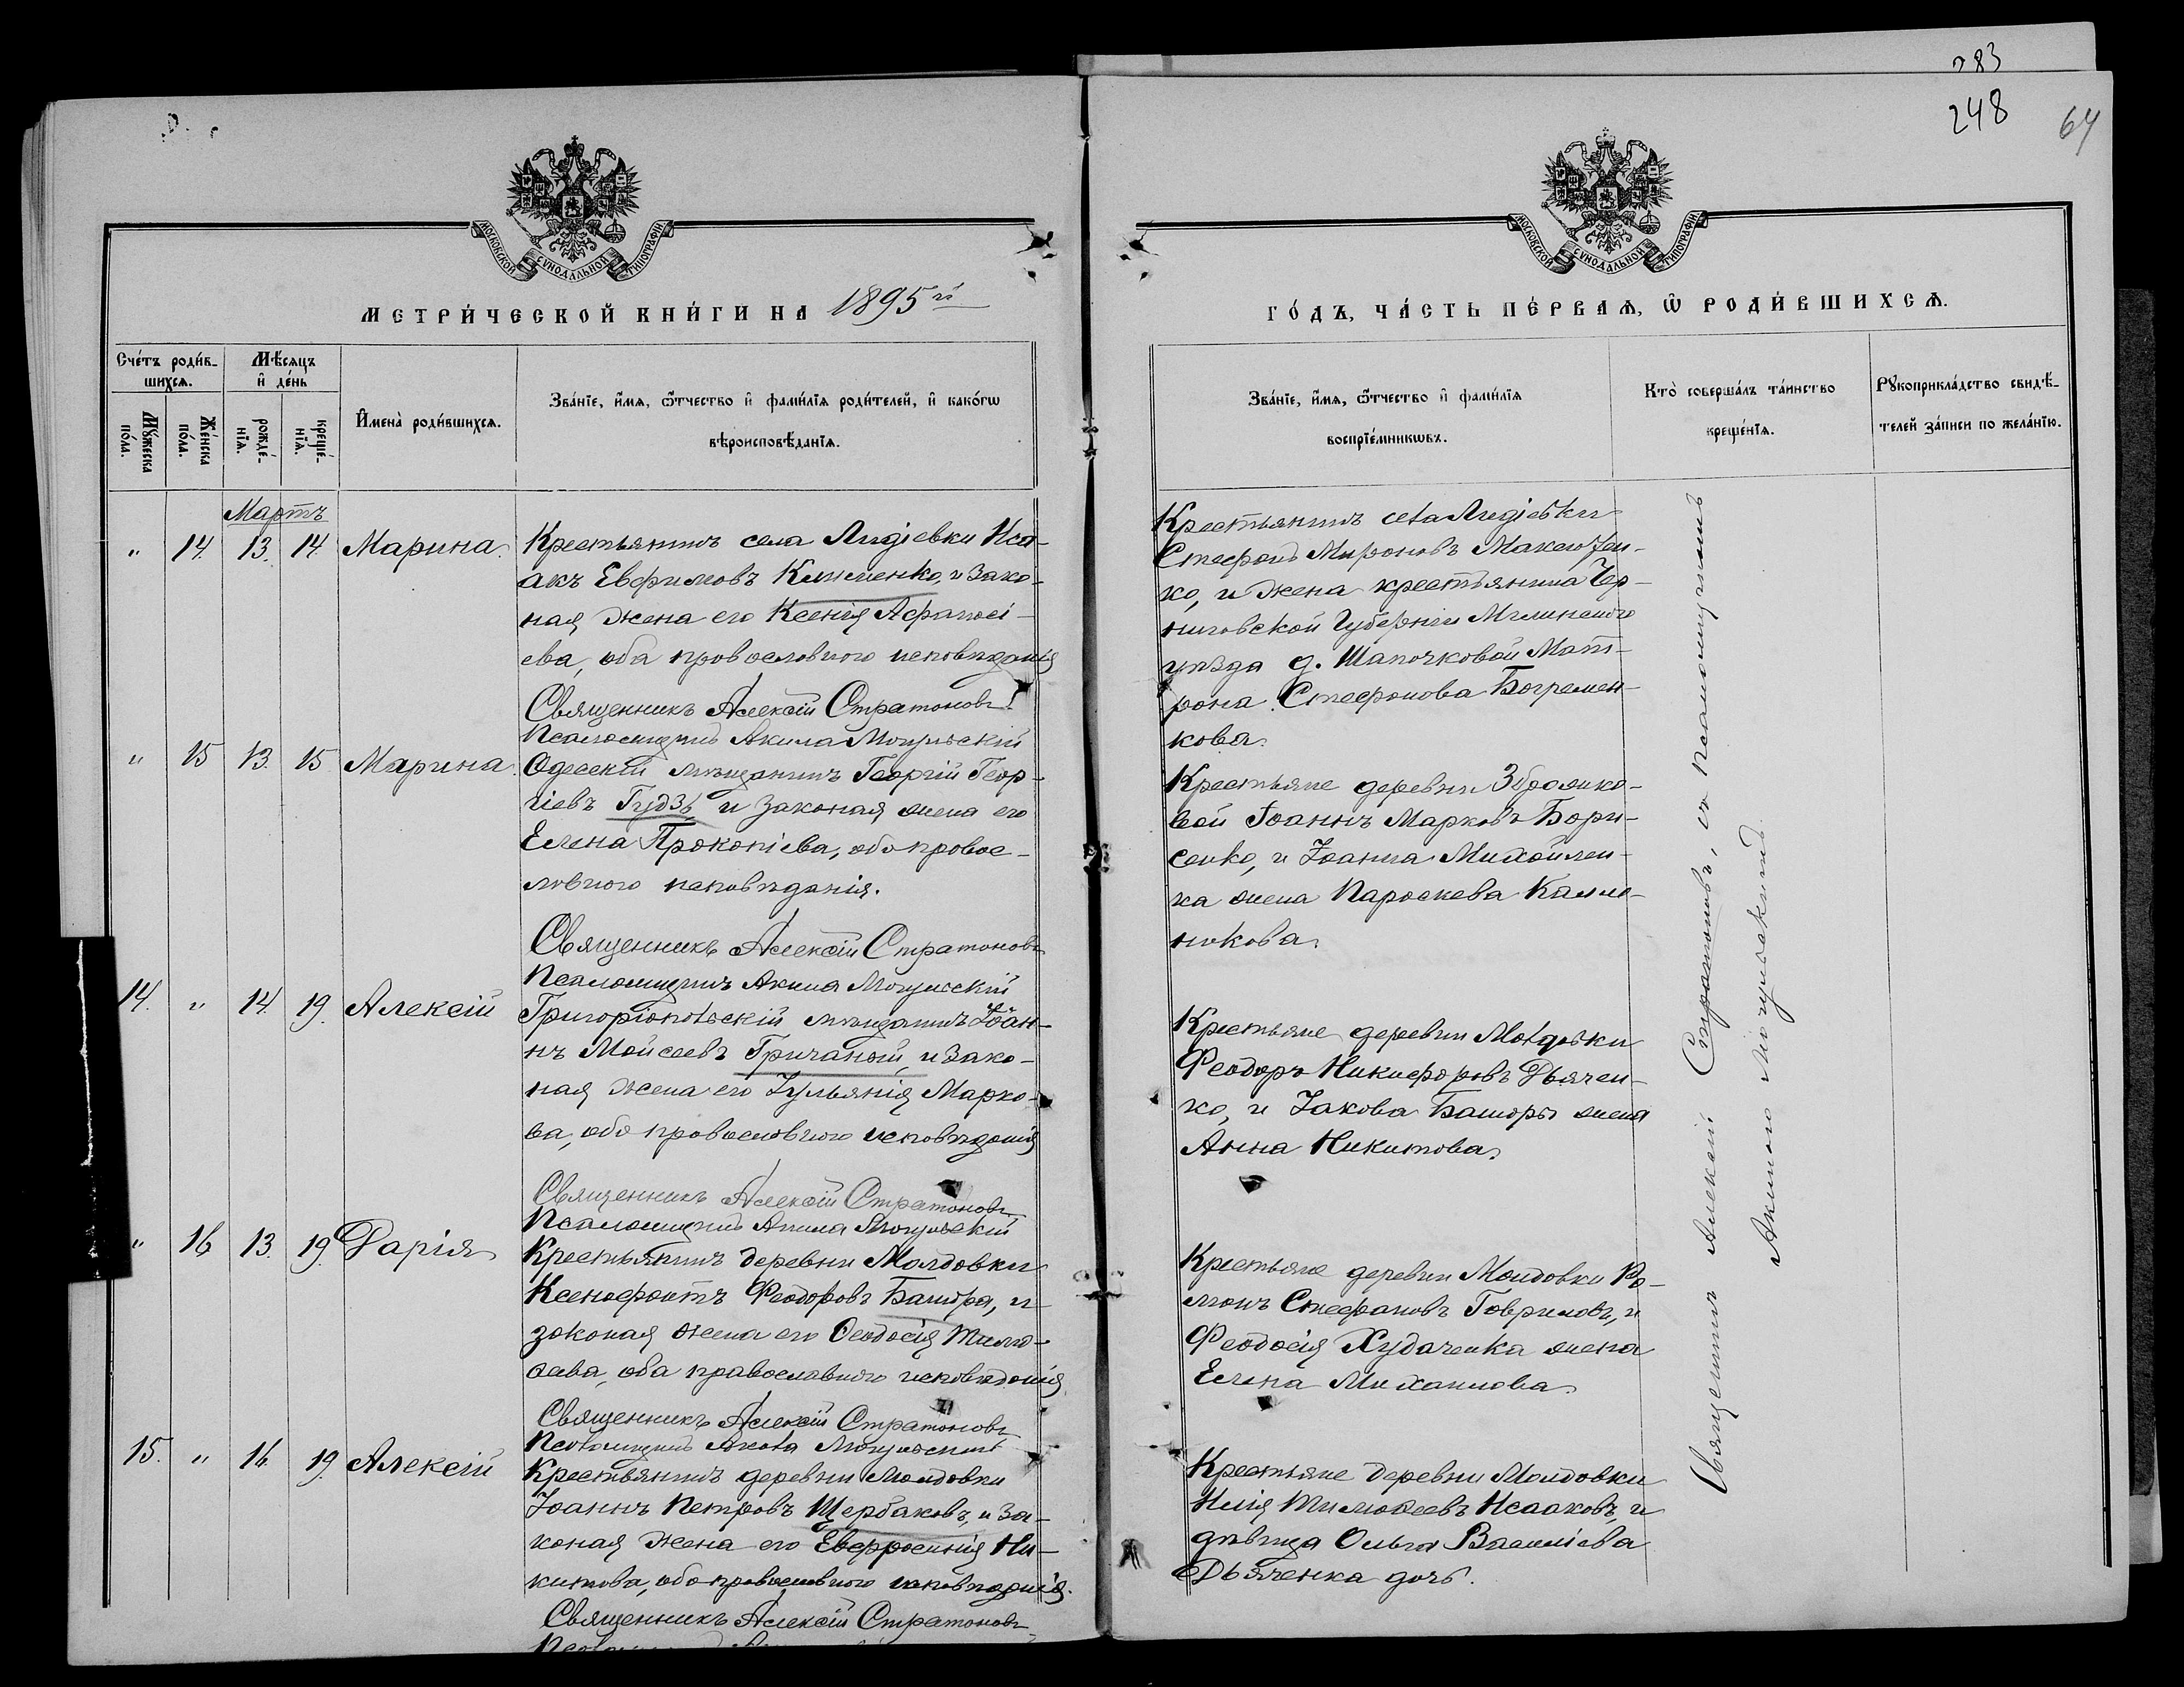 283
248
64
МОСКОВСКОЙ СѴНОДАЛЬНОЙ ТИПОГРАФІИ
МОСКОВСКОЙ СѴНОДАЛЬНОЙ ТИПОГРАФІИ
МЕТРИ́ЧЕСКОЙ КНИ́ГИ НА 1895й
ГО́ДЪ, ЧА́СТЬ ПЕ́РВАѦ, Ѿ РОДИ́ВШИХСѦ.
Сче́тъ роди́в-
шихсѧ.
Мꙋжеска по́ла.
Же́нска по́ла.
Мѣсѧцъ
и де́нь
рожде́-
нїѧ.
креще́-
нїѧ.
Имена̀ роди́вшихсѧ.
Зва́нїе, и́мѧ, ѻ́тчество и фами́лїѧ роди́телей, и како́гѡ
вѣроисповѣ́данїѧ.
Зва́нїе, и́мѧ, ѻ́тчество и фами́лїѧ
воспрїе́мникѡвъ.
Кто̀ соверша́лъ та́инство
креще́нїѧ.
Рꙋкоприкла́дство свидѣ́-
телей за́писи по жела́нїю.
Мартъ
" 14. 13. 14. Марина.
Крестьянинъ села Лидіевки Иса-
акъ Евфимовъ Клименко, и зако-
ная жена его Ксенія Афанасі-
ева, оба православного исповѣданія
Священникъ Алексій Стратоновъ
Псаломщикъ Акила Могульскій
Крестьянинъ села Лидіевки
Стефанъ Мироновъ
ко, и жена крестьянина Чер-
ниговской Губерніи Мглинского
уѣзда д. Шапочковой Мат-
рона Стефанова
кова.
" 15 13. 15 Марина.
Одескій мѣщанинъ Георгій Геор-
гіевъ Гудзь, и законая жена его
Елена Прокопіева, оба правос-
лавного исповѣданія.
Священникъ Алексій Стратоновъ
Псаломщикъ Акила Могульскій
Крестьяне деревни
вой Іоаннъ Марковъ Бори-
сенко, и Іоанна Михайлен-
ка жена Параскева
никова.
14. " 14. 19. Алексій
Григоріопольскій мѣщанинъ Іоан-
нъ Моисеевъ Гричаный, и зако-
ная жена его Іульянія Марко-
ва, оба православного исповѣданія
Священникъ Алексій Стратоновъ
Псаломщикъ Акила Могульскій
Крестьяне деревни Молдовки
Феодоръ Никифоровъ Дьячен-
ко, и Іакова Башоры жена
Анна Никитова.
" 16 13. 19. Дарія
Крестьянинъ деревни Молдовки
Ксенофонтъ Феодоровъ Башора, и
законая жена его Феодосія Тимо-
ѳеева, оба православного исповѣданія
Священникъ Алексій Стратоновъ
Псаломщикъ Акила Могульскій
Крестьяне деревни Молдовки Ро-
манъ Стефановъ Гавриловъ, и
Феодосія Худаченка жена
Елена Михаилова.
15. " 16. 19. Алексій
Крестьянинъ деревни Молдовки
Іоаннъ Петровъ Щербаковъ, и за-
коная жена его Евфросинія Ни-
китова, оба православного исповѣданія.
Священникъ Алексій Стратоновъ
Крестьяне деревни Молдовки
Илія Тимоѳеевъ Исааковъ, и
дѣвица Ольга Василіева
Дьяченка дочь.
Священникъ Алексій Стратоновъ, съ псаломщикомъ
Акилою Могульскимъ.